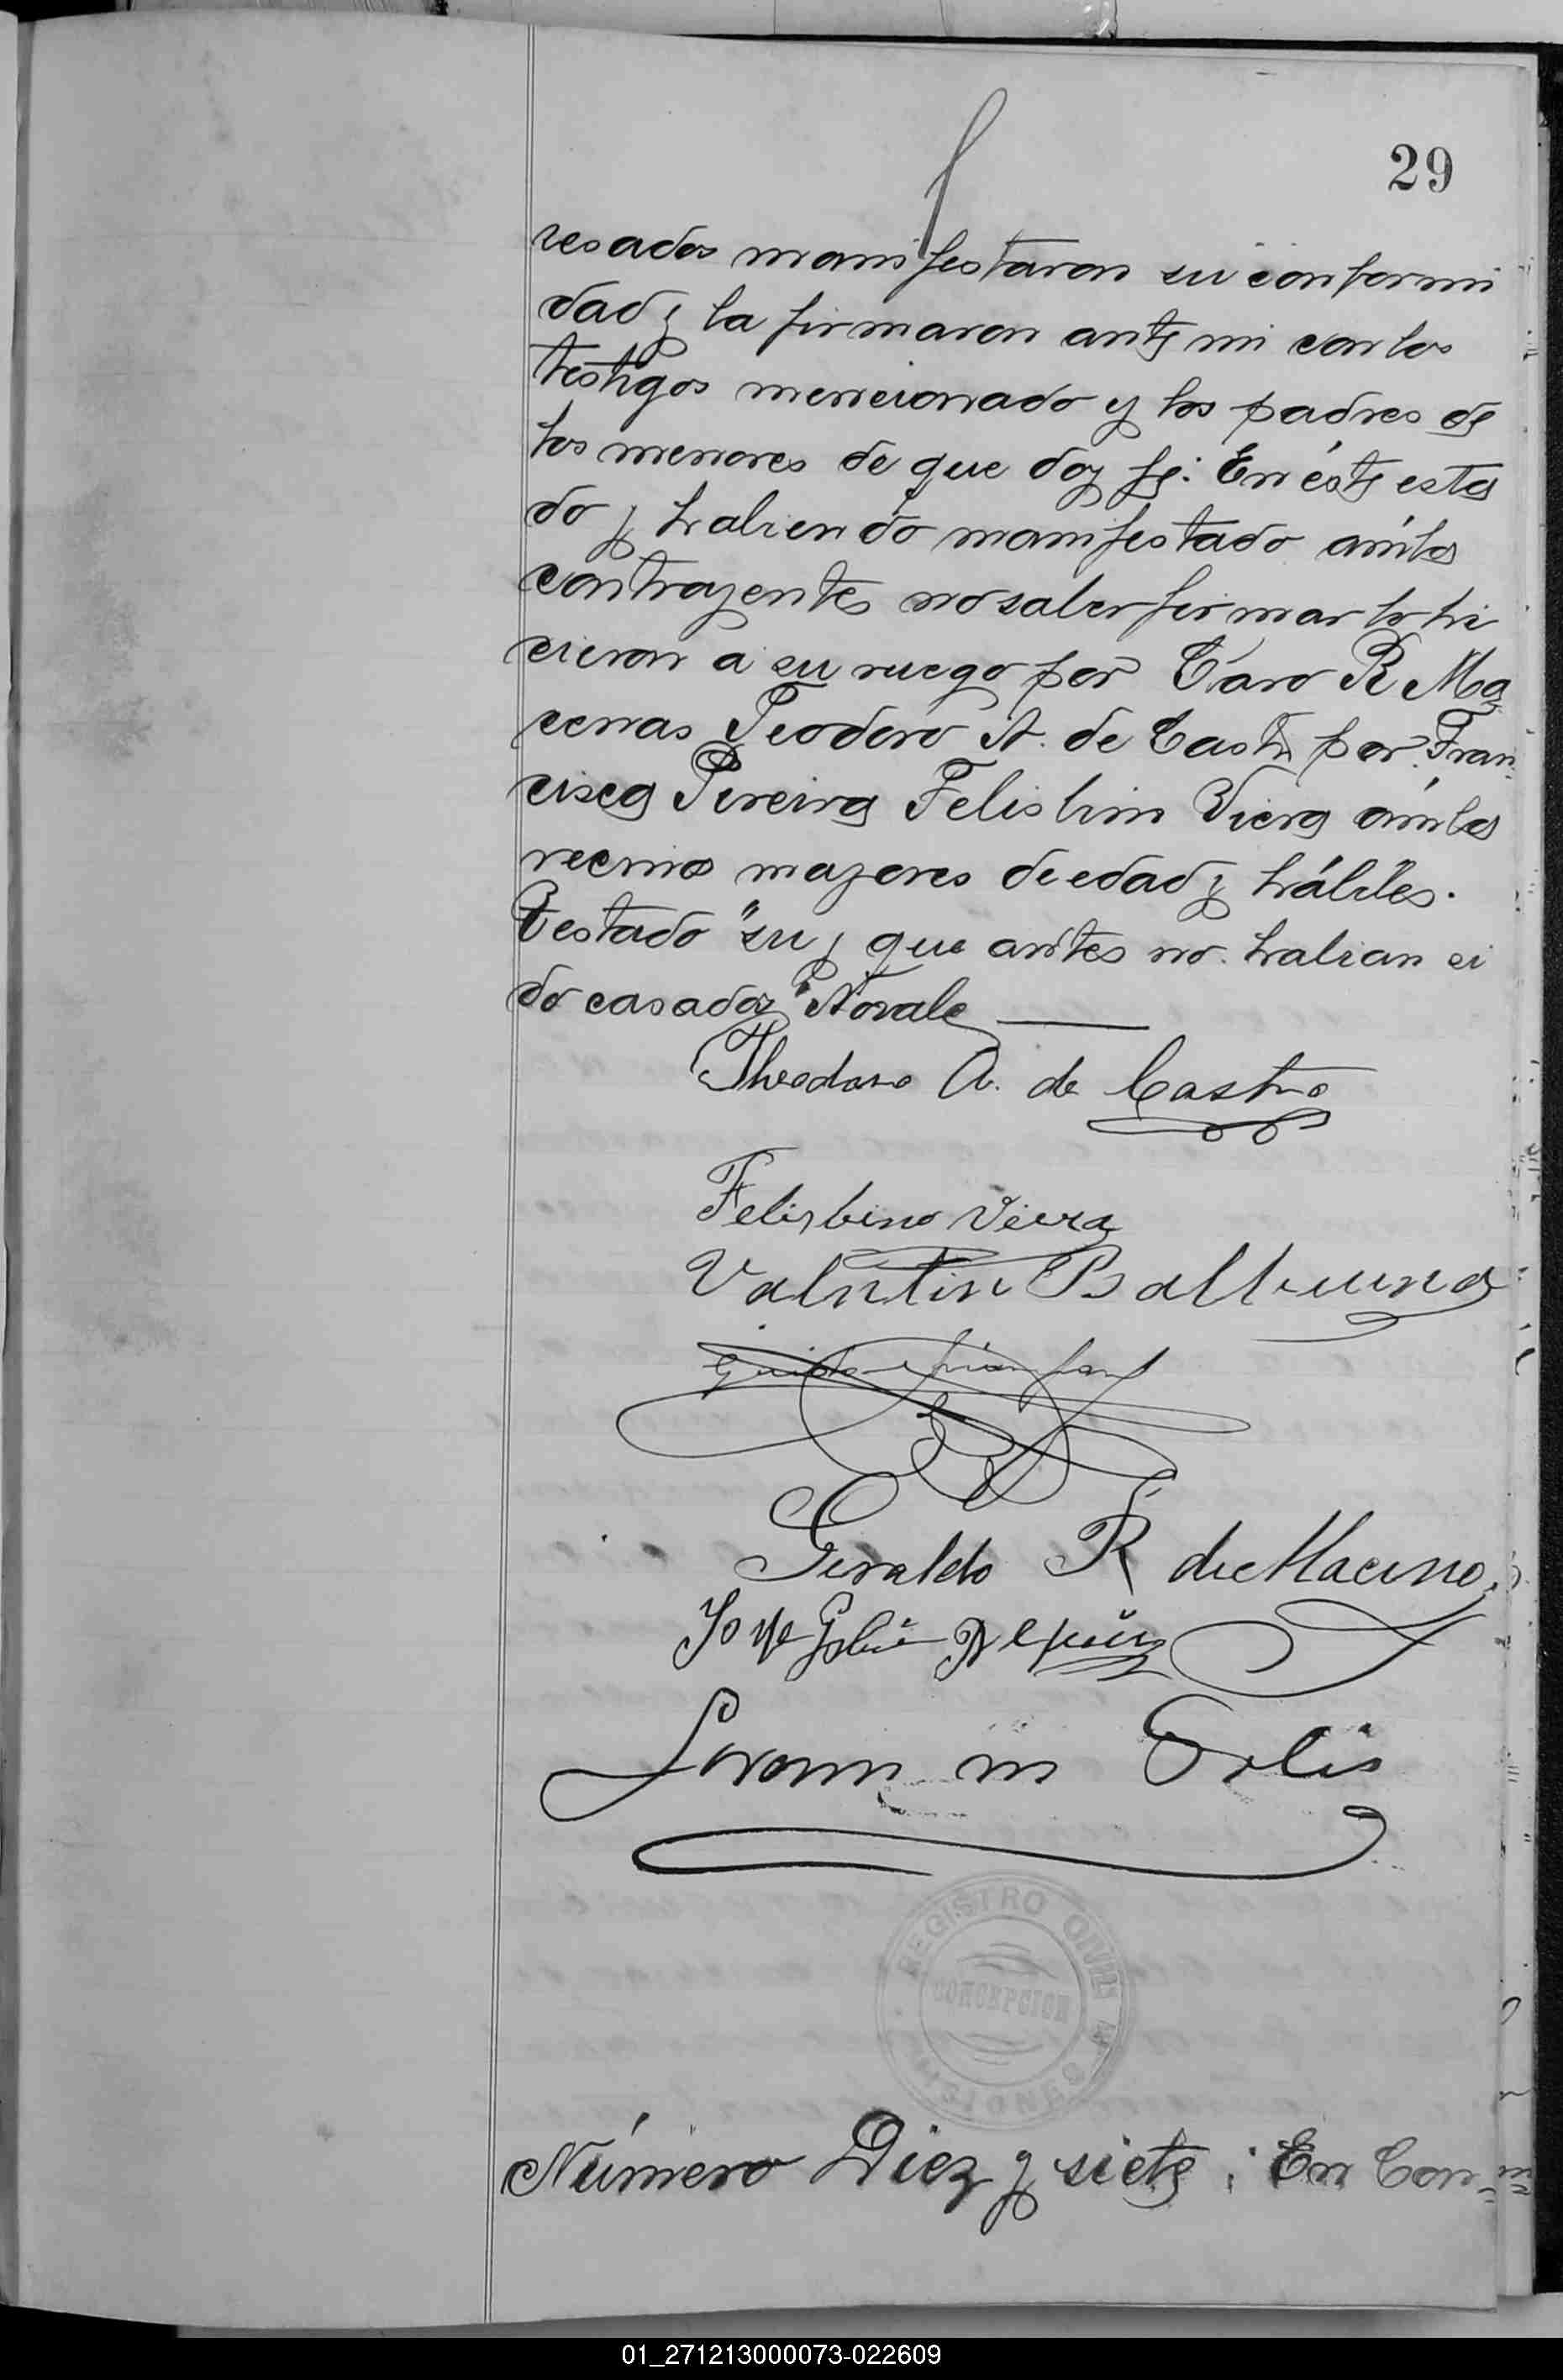 29
resados manifestaron su conformi
dad y la firmaron ante mi con los
testigos mencionado y los padres de
los menores de que doy fe: En éste esta
do y habiendo manifestado ámbos
contrayentes no saber firmar lo hi
cieron a su ruego por Caro R Ma
cenas Teodoro A. de Castro por Fran
cisca Pereira Felisbin Viera ámbos
vecinos mayores de edad y hábiles.
Testado "su y que antes no habian si
do casados" No vale
Theodoro A. de Castro
Felisbino Vieira
Valentin
Geraldo R de Maceno
Jose
Número Diez y siete: En Con-
REGISTRO CIVIL
CONCEPCION
MISIONES
01_271213000073-022609